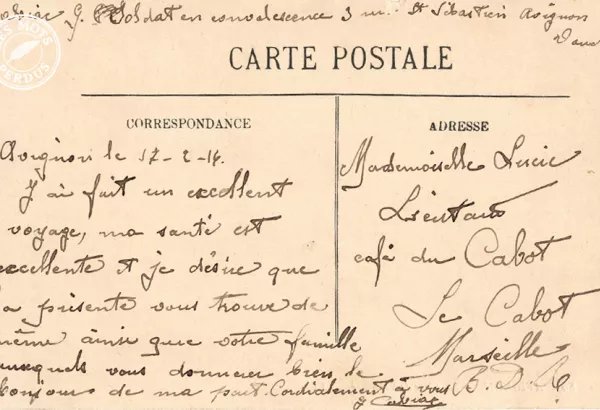 G. Soldat en convalescence 3 rue St Sébastien Avignon
LES MOTS PERDUS
CARTE POSTALE
CORRESPONDANCE
Avignon le 17-2-14.
J ai fait un excellent
voyage, ma santé est
excellente et je désire que
la présente vous trouve de
même ainsi que votre famille
auxquels vous donnerez bien le
bonjour de ma part. Cordialement à vous
ADRESSE
Mademoiselle Lucie
café du Cabot
Le Cabot
Marseille
B. D. R.